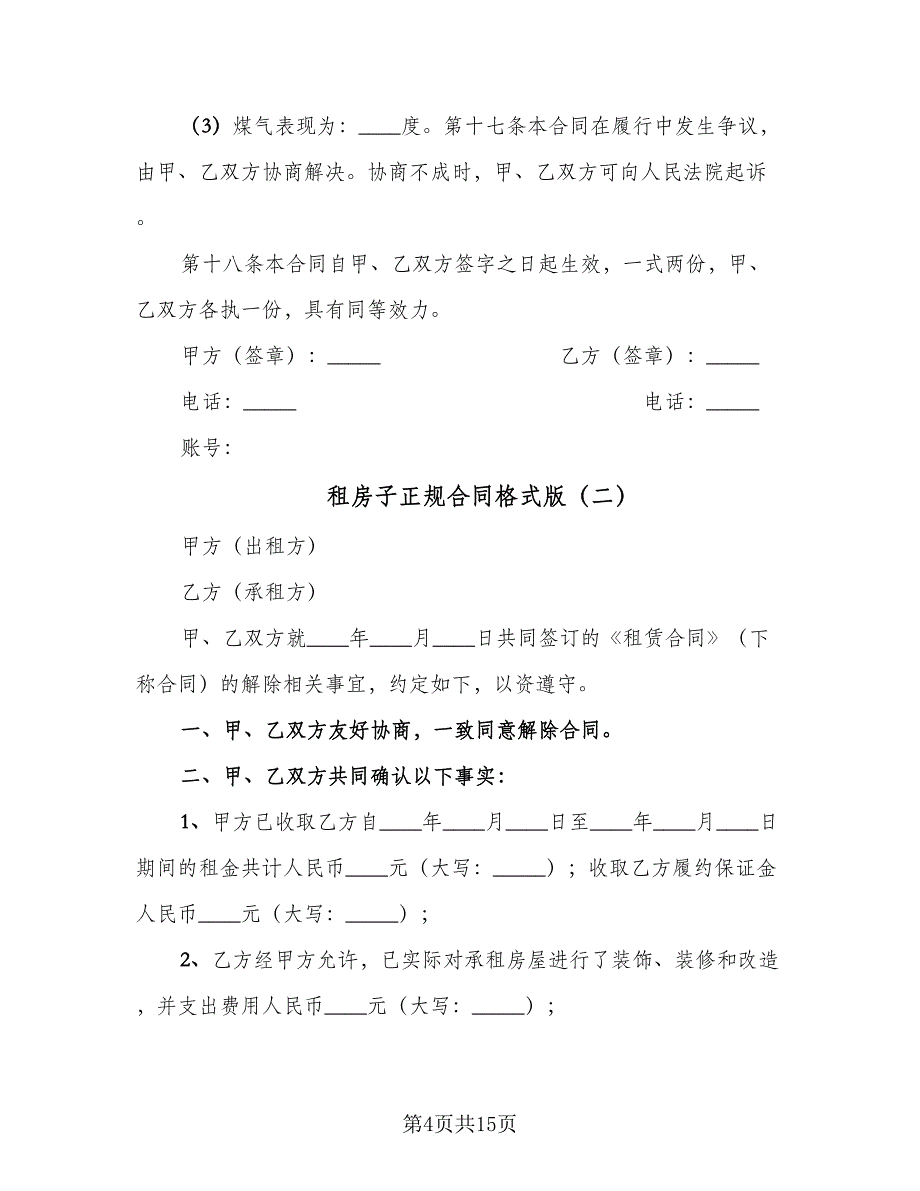 （3）煤气表现为：____度。第十七条本合同在履行中发生争议，
由甲、乙双方协商解决。协商不成时，甲、乙双方可向人民法院起诉
。
第十八条本合同自甲、乙双方签字之日起生效，一式两份，甲、
乙双方各执一份，具有同等效力。
甲方（签章）：_____ 乙方（签章）：_____
电话：_____ 电话：_____
账号：
租房子正规合同格式版（二）
甲方（出租方）
乙方（承租方）
甲、乙双方就____年____月____日共同签订的《租赁合同》（下
称合同）的解除相关事宜，约定如下，以资遵守。
一、甲、乙双方友好协商，一致同意解除合同。
二、甲、乙双方共同确认以下事实：
1、甲方已收取乙方自____年____月____日至____年____月____日
期间的租金共计人民币____元（大写：_____）；收取乙方履约保证金
人民币____元（大写：_____）；
2、乙方经甲方允许，已实际对承租房屋进行了装饰、装修和改造
，并支出费用人民币____元（大写：_____）；
第4页共15页